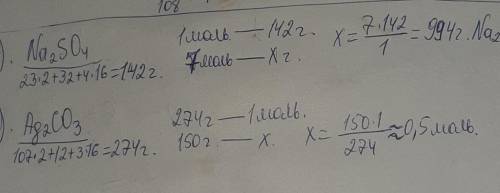 108
). Na₂SO₄ 1моль — 142г. x = 7·142/1 = 994г. Na₂
23·2+32+4·16=142г. 7моль — Xг.
). Ag₂CO₃ 274г — 1моль.
107·2+12+3·16=274г. 150г — X. X = 150·1/274 ≈ 0,5моль.